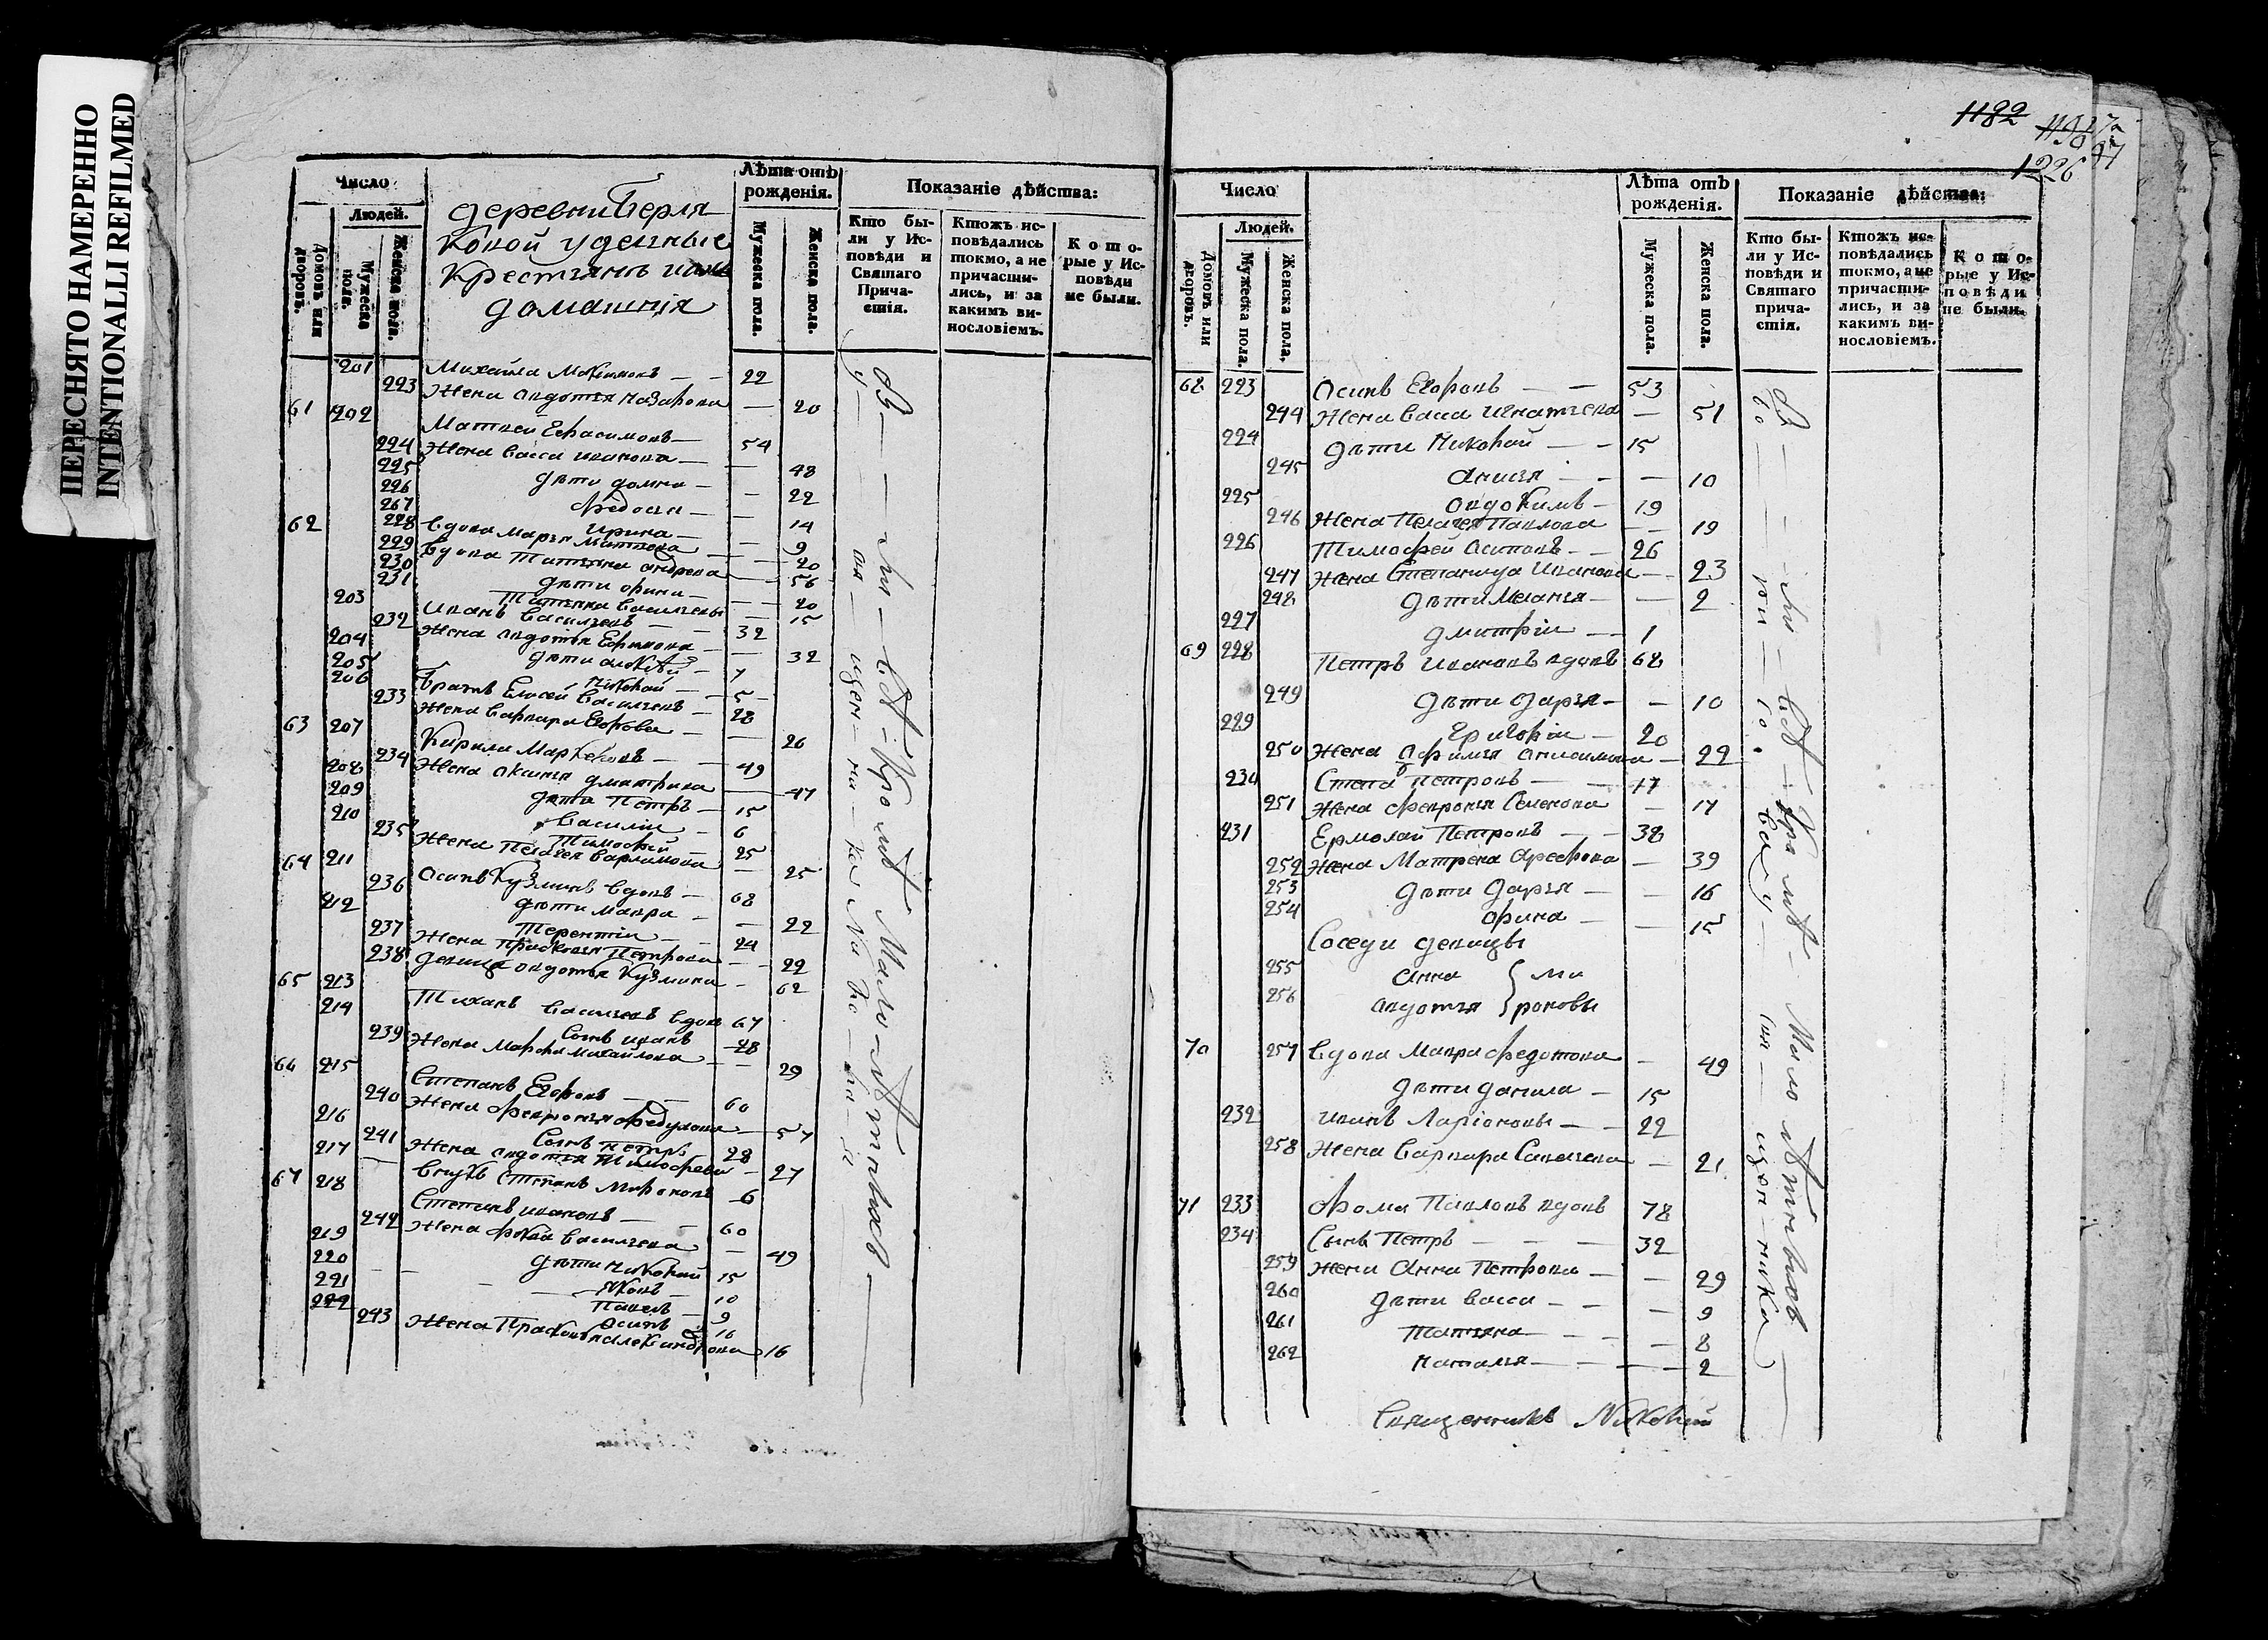 ПЕРЕСНЯТО НАМЕРЕННО
INTENTIONALLI REFILMED
Число
Людей.
Домовъ или дворовъ.
Мужеска пола.
Женска пола.
деревни Беря
ковой удельные
Крестьянъ
домашнія
Лѣта отъ рожденія.
Мужеска пола.
Женска пола.
Показаніе дѣйства:
Кто бы-
ли у Ис-
повѣди и
Святаго
Прича-
стія.
Ктожъ ис-
повѣдались
токмо, а не
причасти-
лись, и за
какимъ ви-
нословіемъ.
К о т о-
рые у Ис-
повѣди
не были.
201 Михайла 22
223 Жена Авдотья Назарова — 20
61 202 Матвей Герасимовъ — 54
224 Жена Васса Иванова — 48
225 дѣти Домна — 22
226 Федосья — 14
227 Ирина — 9
62 228 вдова Марья Матвеева — 20
229 вдова Татьяна Андреева — 56
230 дѣти Орина — 20
231 Татьяна Васильевы 15
203 Иванъ Васильевъ — 32
232 Жена Авдотья — 32
204 дѣти Алексѣй 7
205 Николай — 5
206 братъ Елисей Васильевъ — 28
233 Жена Варвара Егорова — 26
63 207 Кирила 49
234 Жена Аксинья Дмитриева — 47
208 дѣти Петръ — 15
209 Василии — 6
210 Тимофей 25
235 Жена Пелагея — 25
64 211 Осипъ Кузминъ вдовъ — 68
236 дѣти Мавра — 22
212 Терентии — 24
237 Жена Прасковья Петрова — 22
238 девица Авдотья Кузмина — 62
65 213 Тиханъ Васильевъ вдовъ 67
214 Сынъ Иванъ 28
239 Жена Марфа Михайлова — 29
66 215 Степанъ Егоровъ — 60
240 Жена Февронья Федулова — 57
216 Сынъ Петръ 28
241 Жена Авдотья Тимофеева — 27
217 внукъ Степанъ Мироновъ 6
67 218 Степанъ Ивановъ — 60
242 Жена Фокла Васильева — 49
219 дѣти Николай 15
220 Яковъ 10
221 Павелъ — 9
222 Осипъ 16
243 Жена Прасковья Александрова 16
1182
1226
Число
Людей.
Домовъ или дворовъ.
Мужеска пола.
Женска пола.
Лѣта отъ рожденія.
Мужеска пола.
Женска пола.
Показаніе дѣйства:
Кто бы-
ли у Ис-
повѣди и
Святаго
прича-
стія.
Ктожъ ис-
повѣдались
токмо, а не
причасти-
лись, и за
какимъ ви-
нословіемъ.
К о т о-
рые у Ис-
повѣди
не были.
68 223 Осипъ Егоровъ — 53
244 Жена Васа Игнатьева — 51
224 дѣти Николай — 15
245 Анисья — 10
225 Авдокимъ — 19
246 Жена Пелагея Павлова — 19
226 Тимофей Осиповъ — 26
247 Жена Степанида Иванова — 23
248 дѣти Меланья — 2
227 Дмитріи — 1
69 228 Петръ Ивановъ вдовъ 68
249 дѣти Дарья — 10
229 Григоріи — 20
250 Жена Афимья Анисимова — 22
230 Степа Петровъ — 17
251 Жена Февронья Семенова — 17
231 Ермолай Петровъ — 38
252 Жена Матрена Арефьева — 39
253 дѣти Дарья — 16
254 Орина — 15
Соседи девицы
255 Анна } Ми
256 Авдотья } роновы
70 257 Вдова Мавра Федотова — 49
дѣти Данила — 15
232 Иванъ Ларіоновы — 22
258 Жена Варвара Савельева — 21
71 233 Фома Павловъ вдовъ 78
234 Сынъ Петръ — 32
259 Жена Анна Петрова — 29
260 дѣти Васса — 9
261 Татьяна — 8
262 Наталья — 2
Священникъ Николай